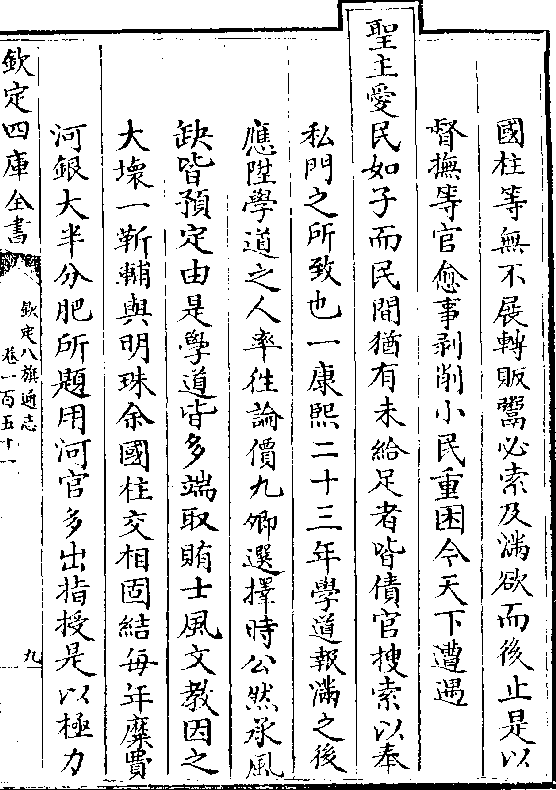 國柱等無不展轉販鬻必索及滿欲而後止是以
督撫等官愈事剥削小民重困今天下遭遇
聖主愛民如子而民間猶有未給足者皆債官搜索以奉
私門之所致也一康熙二十三年學道報滿之後
應陞學道之人率往論價九卿選擇時公然承風
缺皆預定由是學道皆多端取賄士風文教因之
大壞一靳輔與明珠余國柱交相固結每年糜費
河銀大半分肥所題用河官多出指授是以極力
欽定四庫全書
欽定八旗通志
卷一百五十一
九